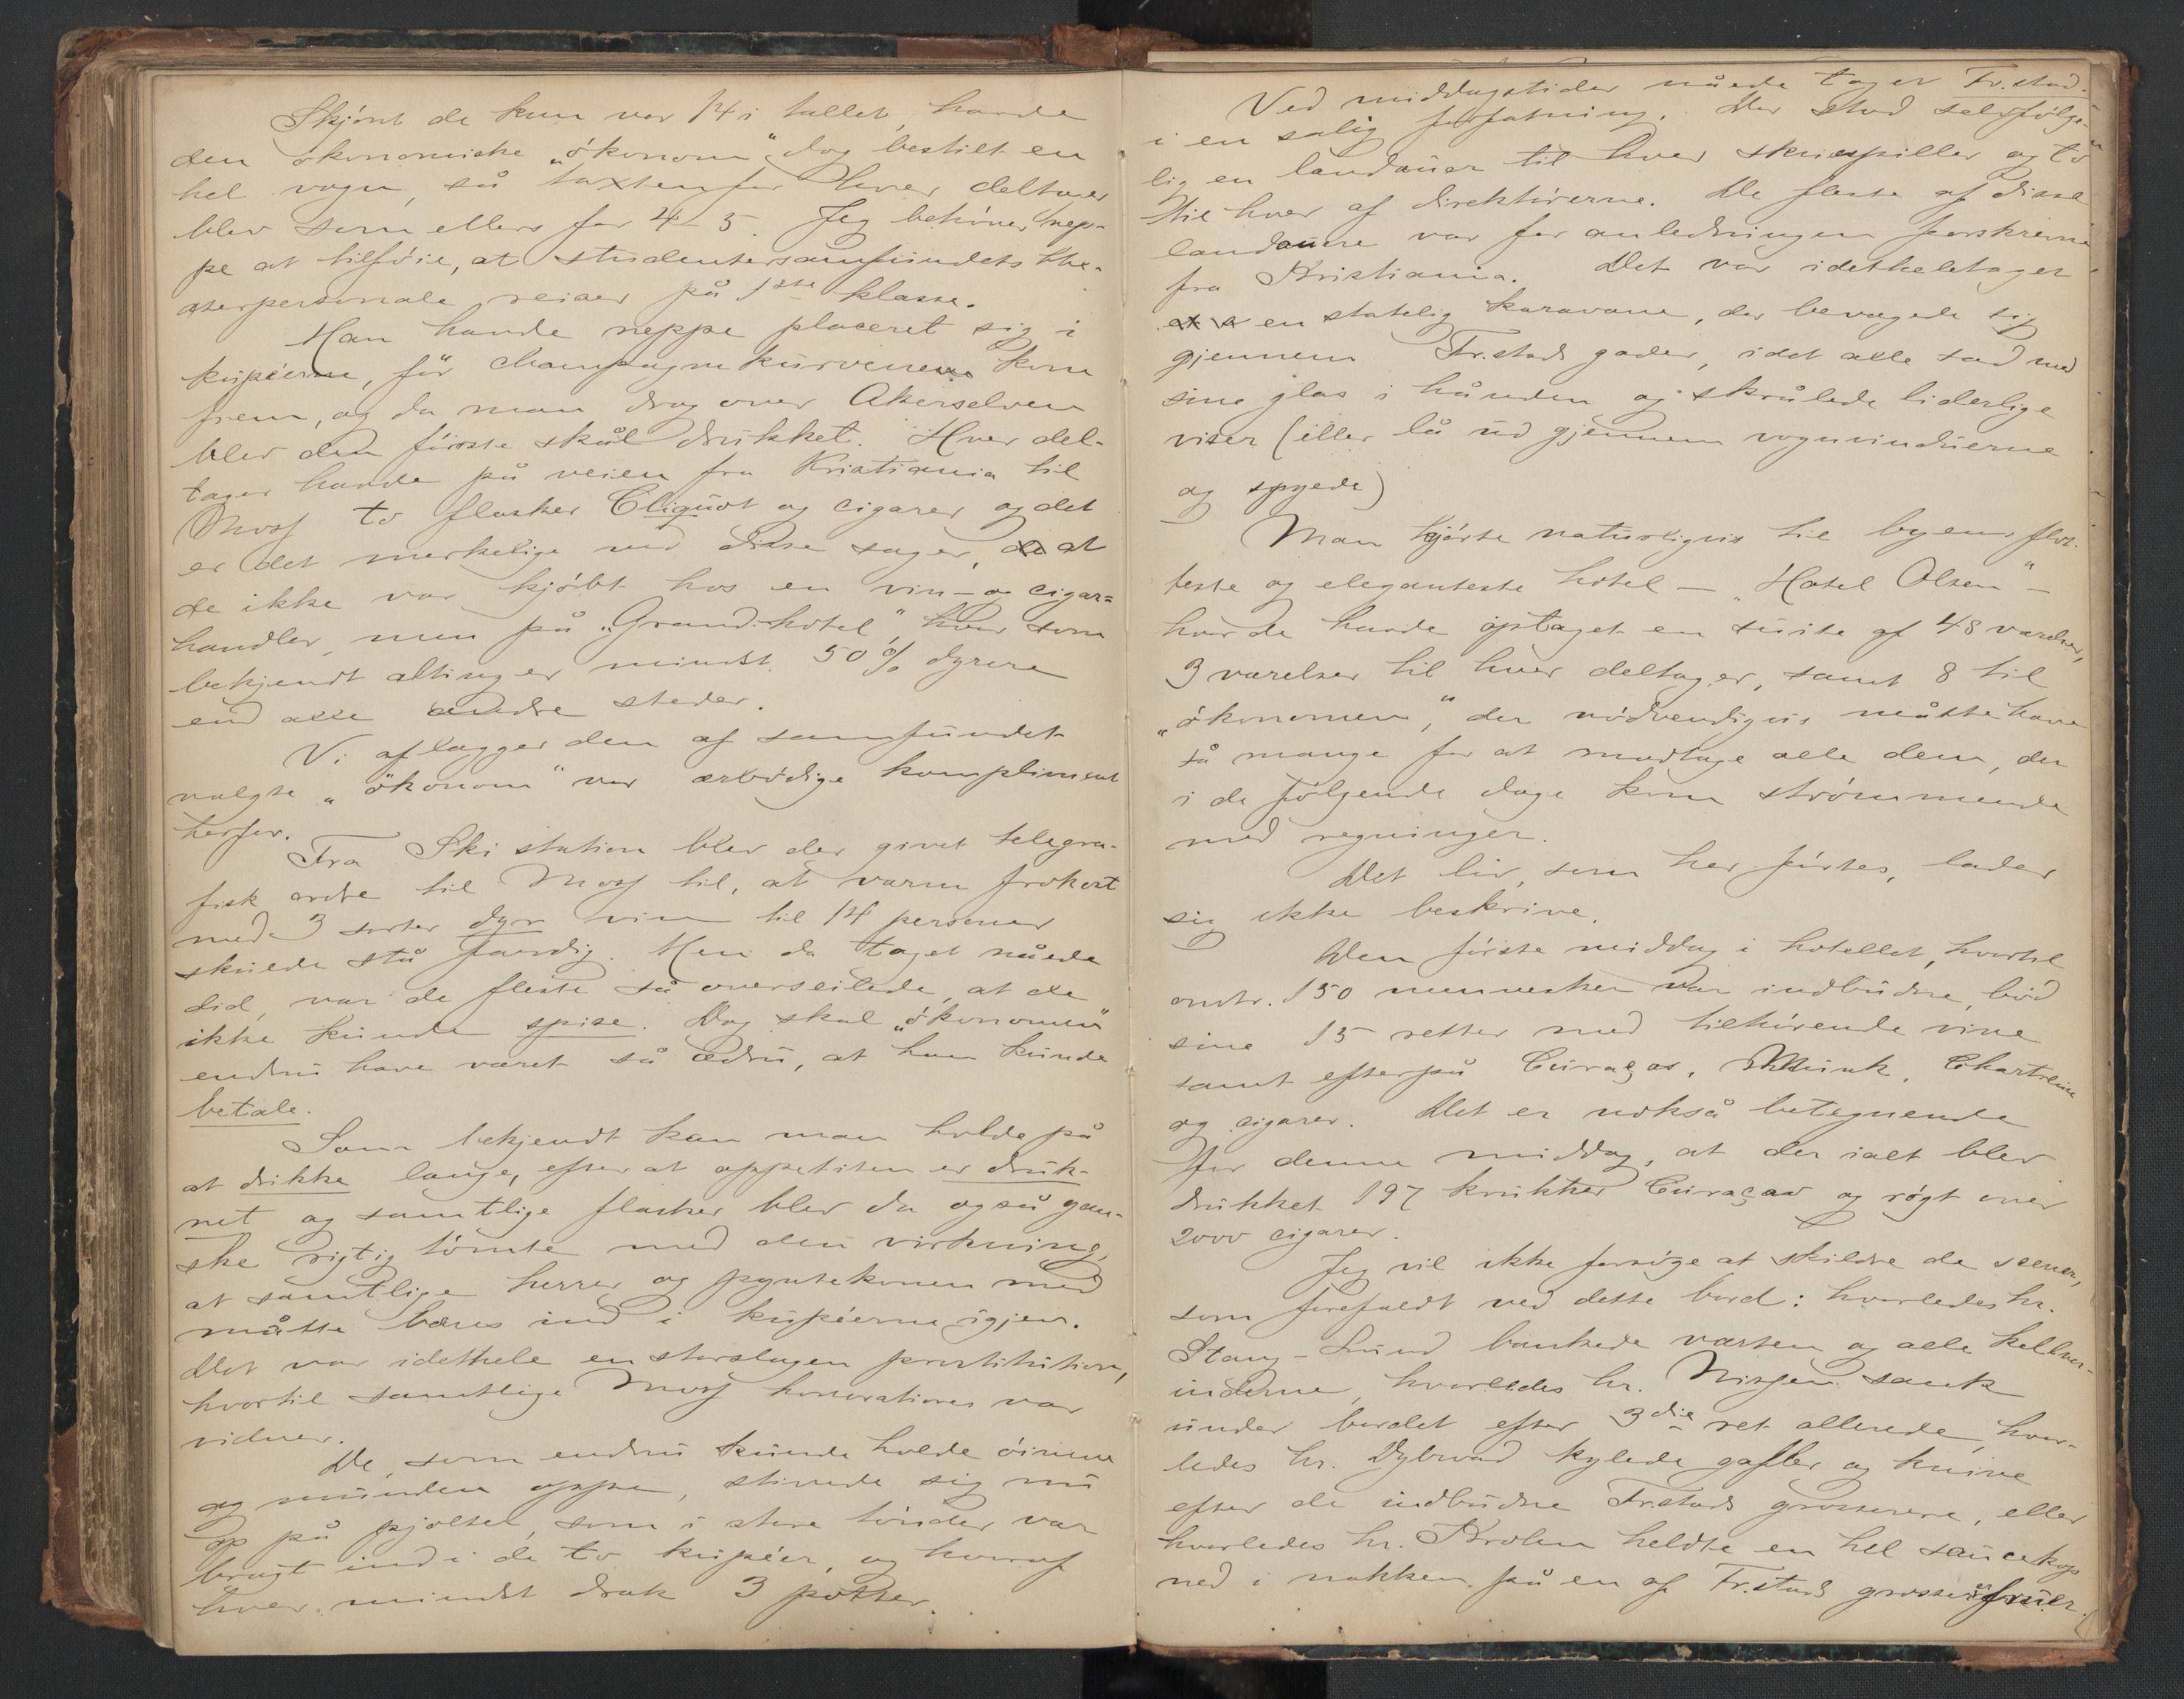 Skjönt de kun var 14 i tallet, havde
den økonomiske „økonom“ dog bestilt en
hel vogn, så taxten for hver deltager
blev som ellers for 4-5. Jeg behöver nep-
pe at tilföie, at studentersamfundets the-
aterpersonale reiser på 1ste klasse.
Man havde neppe placeret sig i
kupéerne, för champagnekurvene kom
frem, og da man drog over Akerselven
blev den förste skål drukket. Hver del-
tager havde på veien fra Kristiania til
Moss to flasker Cliquot og cigarer, og det
er det merkelige ved disse sager, at
de ikke var kjöbt hos en vin- og cigar-
handler, men på „Grand-hotel“, hvor som
bekjendt alting er mindst 50% dyrere
end alle andre steder.
Vi aflægger den af samfundet
valgte „ökonom“ vor ærbödige kompliment
herfor.
Fra Ski station blev der givet telegra-
fisk ordre til Moss til, at varm frokost
med 3 sorter dyr vin til 14 personer
skulde stå færdig. Men da toget nåede
did, var de fleste så overseilede, at de
ikke kunde spise. Dog skal „ökonomen“
endnu have været så ædru, at han kunde
betale.
Som bekjendt kan man holde på
at drikke længe, efter at appetiten er druk-
net og samtlige flasker blev da også gan-
ske rigtig tömte med den virkning,
at samtlige herrer og pyntekonen med
måtte bæres ind i kupéerne igjen.
Det var idethele en storslagen prostitution,
hvortil samtlige Moss honoratiores var
vidner.
De, som endnu kunde holde öinene
og munden oppe, stivede sig nu
op på pjolter, som i store tönder var
bragt ind i de to kupéer, og hvoraf
hver mindst drak 3 potter.
Ved middagstider nåede toget Fr.stad.
i en salig forfatning. Der stod selvfölge-
lig en landauer til hver skuespiller og to
til hver af direktörerne. De fleste af disse
landauere var for anledningen forskrevne
fra Kristiania. Det var idetheletaget
en statelig karavane, der bevægede sig
gjennem Fr.stads gader, idet alle sad med
sine glas i hånden og skrålede liderlige
viser (eller lå ud gjennem vognvinduerne
og spyede)
Man kjörte naturligvis til byens flot-
teste og eleganteste hotel — „Hotel Olsen“ —
hvor de havde optaget en suite af 48 værelser,
3 værelser til hver deltager, samt 8 til
„ökonomen“, der nödvendigvis måtte have
så mange for at modtage alle dem, der
i de fölgende dage kom strömmende
med regninger.
Det liv, som her förtes, lader
sig ikke beskrive.
Den förste middag i hotellet, hvortil
omtr. 150 mennesker var indbudne, böd
sine 15 retter med tilhörende vine
samt efterpå Curaçao, Munk, Chartreuse
og cigarer. Det er nokså betegnende
for denne middag, at der ialt blev
drukket 197 krukker Curaçao og rögt over
2000 cigarer.
Jeg vil ikke forsöge at skildre de scener,
som forefaldt ved dette bord: hvorledes hr.
Stang-Lund bankede værten og alle kellner-
inderne, hvorledes hr. Nissen sank
under bordet efter 3die ret allerede, hvor-
ledes hr. Dybwad kylede gafler og knive
efter de indbudne Fr.stads grosserere, eller
hvorledes hr. Krohn heldte en hel saucekop
ned i nakken på en af Fr.stads grosserfruer.